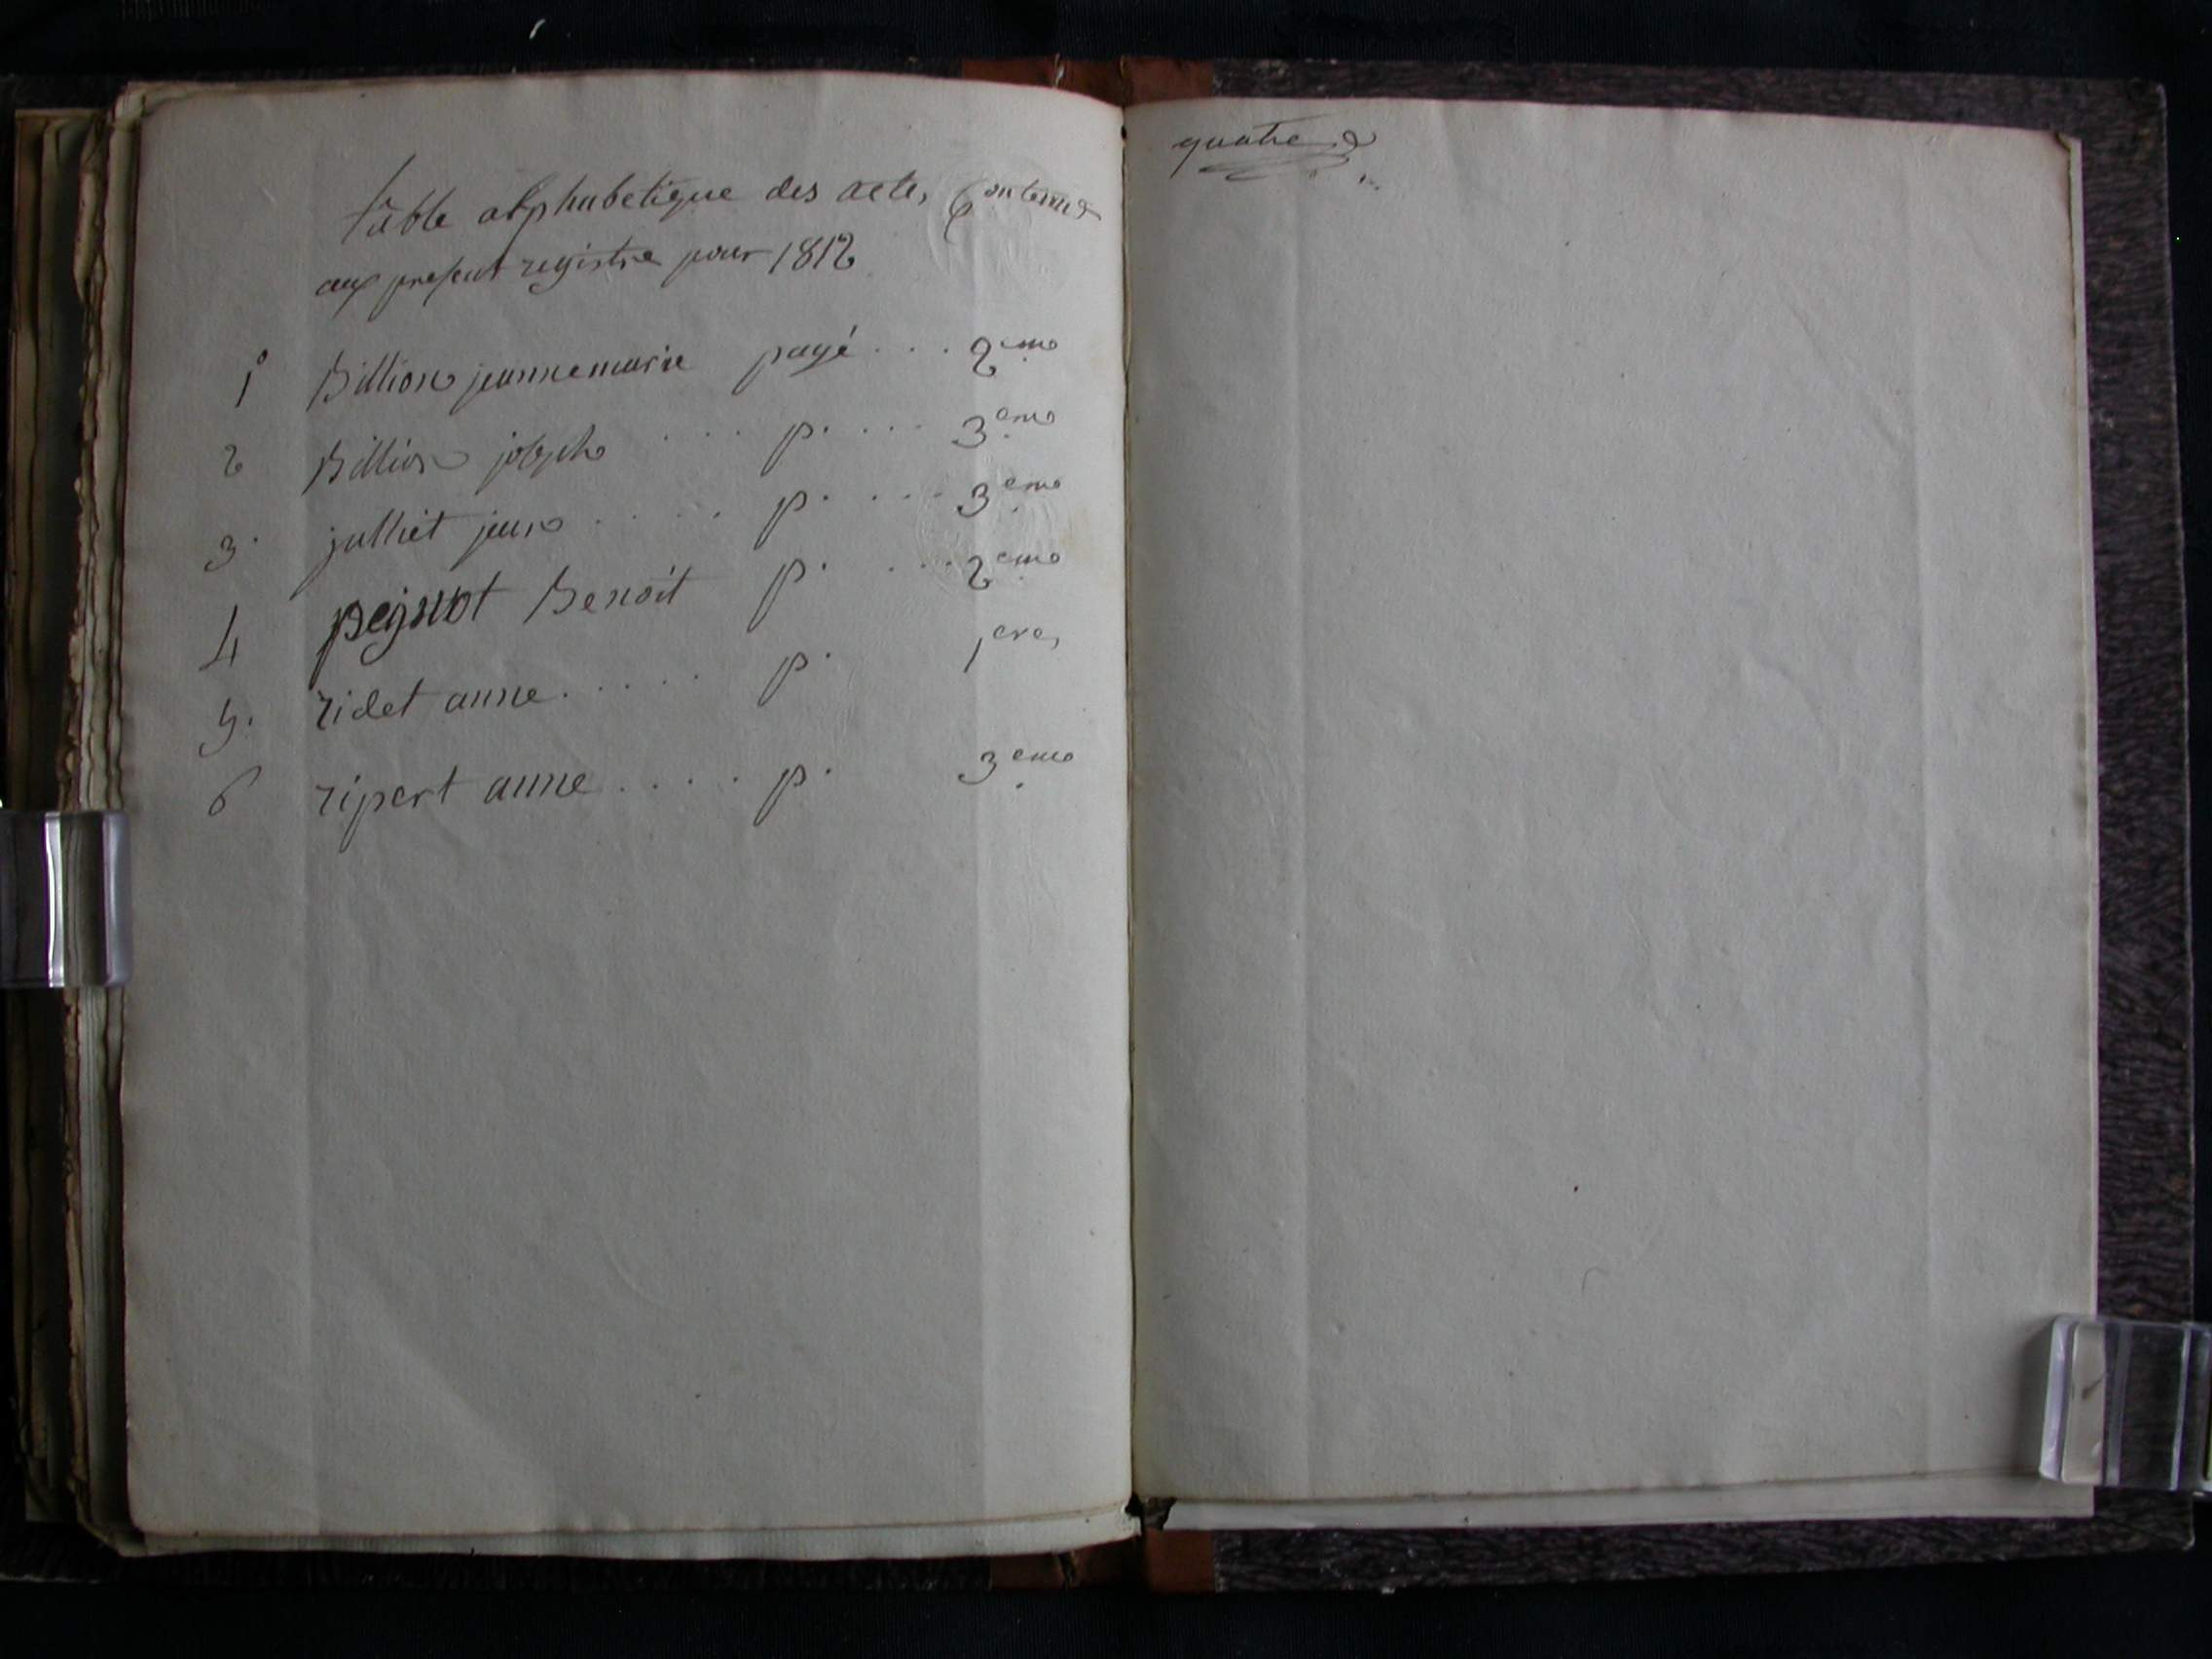 table alphabetique des actes Contenus
aux present registre pour 1812
1° Billion jeannemarie pagé . . . 2eme
2 Billion joseph . . . p. . . . 3eme
3. julliet jean . . . . p. . . . 3eme
4 pegnot Benoit p. . . . 2eme
5. ridet anne . . . . . p. 1ere
6 ripert anne . . . . p. 3eme
quatre